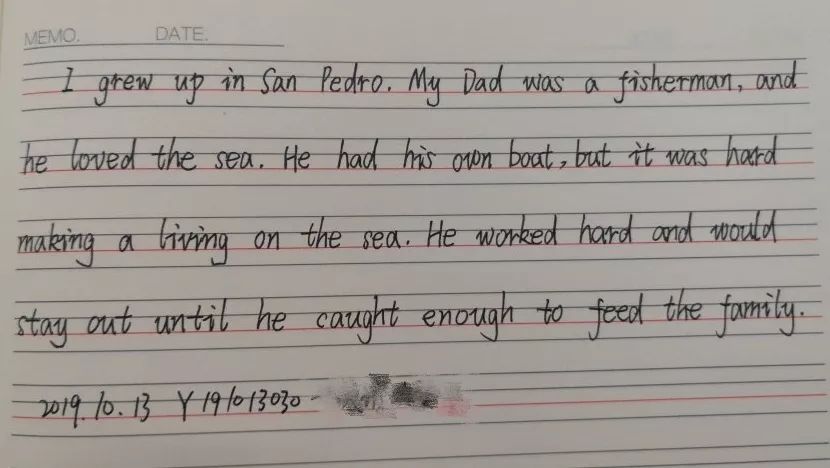 MEMO. DATE.
I grew up in San Pedro. My Dad was a fisherman, and
he loved the sea. He had his own boat, but it was hard
making a living on the sea. He worked hard and would
stay out until he caught enough to feed the family.
2019.10.13 Y191013030-